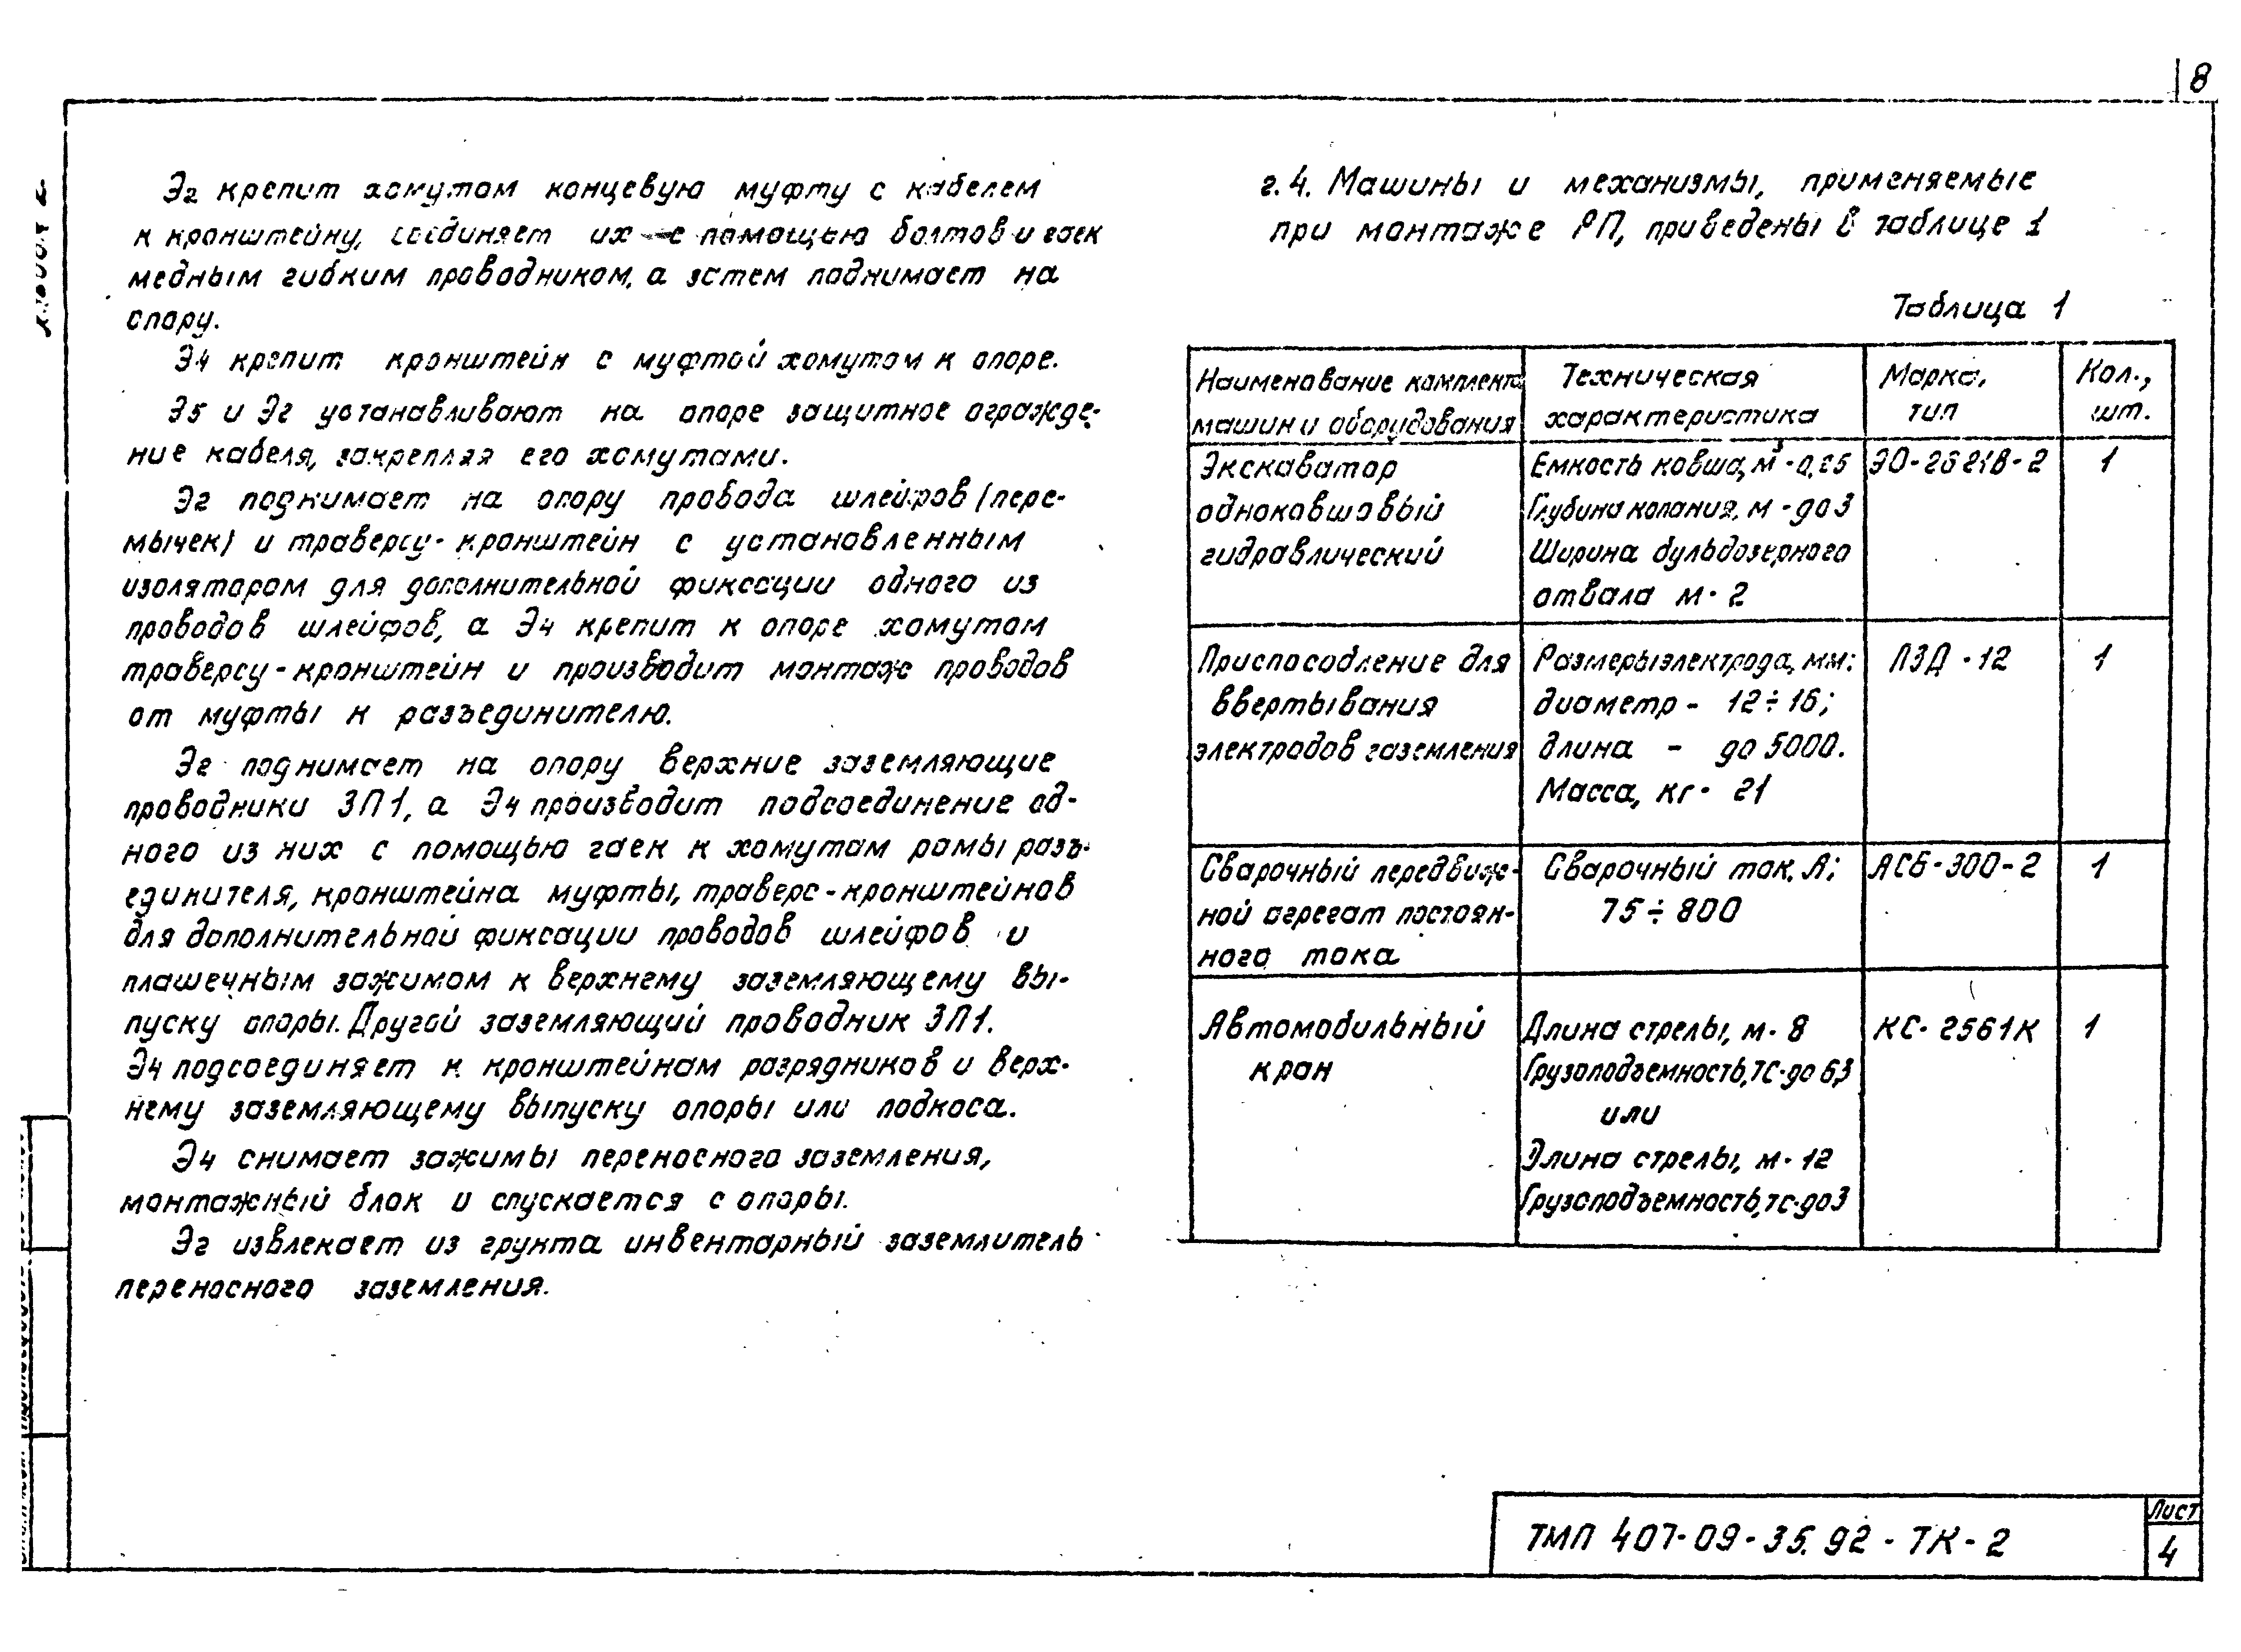 8
Э2 крепит хомутом концевую муфту с кабелем
к кронштейну, соединяет их с помощью болтов и гаек
медным гибким проводником, а затем поднимает на
опору.
Э4 крепит кронштейн с муфтой хомутом к опоре.
Э5 и Э2 устанавливают на опоре защитное огражде-
ние кабеля, закрепляя его хомутами.
Э2 поднимает на опору провода шлейфов (пере-
мычек) и траверсу-кронштейн с установленным
изолятором для дополнительной фиксации одного из
проводов шлейфов, а Э4 крепит к опоре хомутом
траверсу-кронштейн и производит монтаж проводов
от муфты к разъединителю.
Э2 поднимает на опору верхние заземляющие
проводники ЗП1, а Э4 производит подсоединение од-
ного из них с помощью гаек к хомутам рамы разъ-
единителя, кронштейна муфты, траверс-кронштейнов
для дополнительной фиксации проводов шлейфов и
плашечным зажимом к верхнему заземляющему вы-
пуску опоры. Другой заземляющий проводник ЗП1.
Э4 подсоединяет к кронштейнам разрядников и верх-
нему заземляющему выпуску опоры или подкоса.
Э4 снимает зажимы переносного заземления,
монтажный блок и спускается с опоры.
Э2 извлекает из грунта инвентарный заземлитель
переносного заземления.
2.4. Машины и механизмы, применяемые
при монтаже РП, приведены в таблице 1
Таблица 1
Наименование комплекта
машин и оборудования
Техническая
характеристика
Марка,
тип
Кол.,
шт.
Экскаватор
одноковшовый
гидравлический
Емкость ковша, м³ - 0,25
Глубина копания, м - до 3
Ширина бульдозерного
отвала м - 2
ЭО-2621В-2
1
Приспособление для
ввертывания
электродов заземления
Размеры электрода, мм:
диаметр - 12÷16;
длина - до 5000.
Масса, кг - 21
ПЗД-12
1
Сварочный передвиж-
ной агрегат постоян-
ного тока
Сварочный ток, А;
75÷800
АСБ-300-2
1
Автомобильный
кран
Длина стрелы, м - 8
Грузоподъемность, тс - до 6,3
или
Длина стрелы, м - 12
Грузоподъемность, тс - до 3
КС-2561К
1
ТМП 407-09-35.92-ТК-2
Лист
4